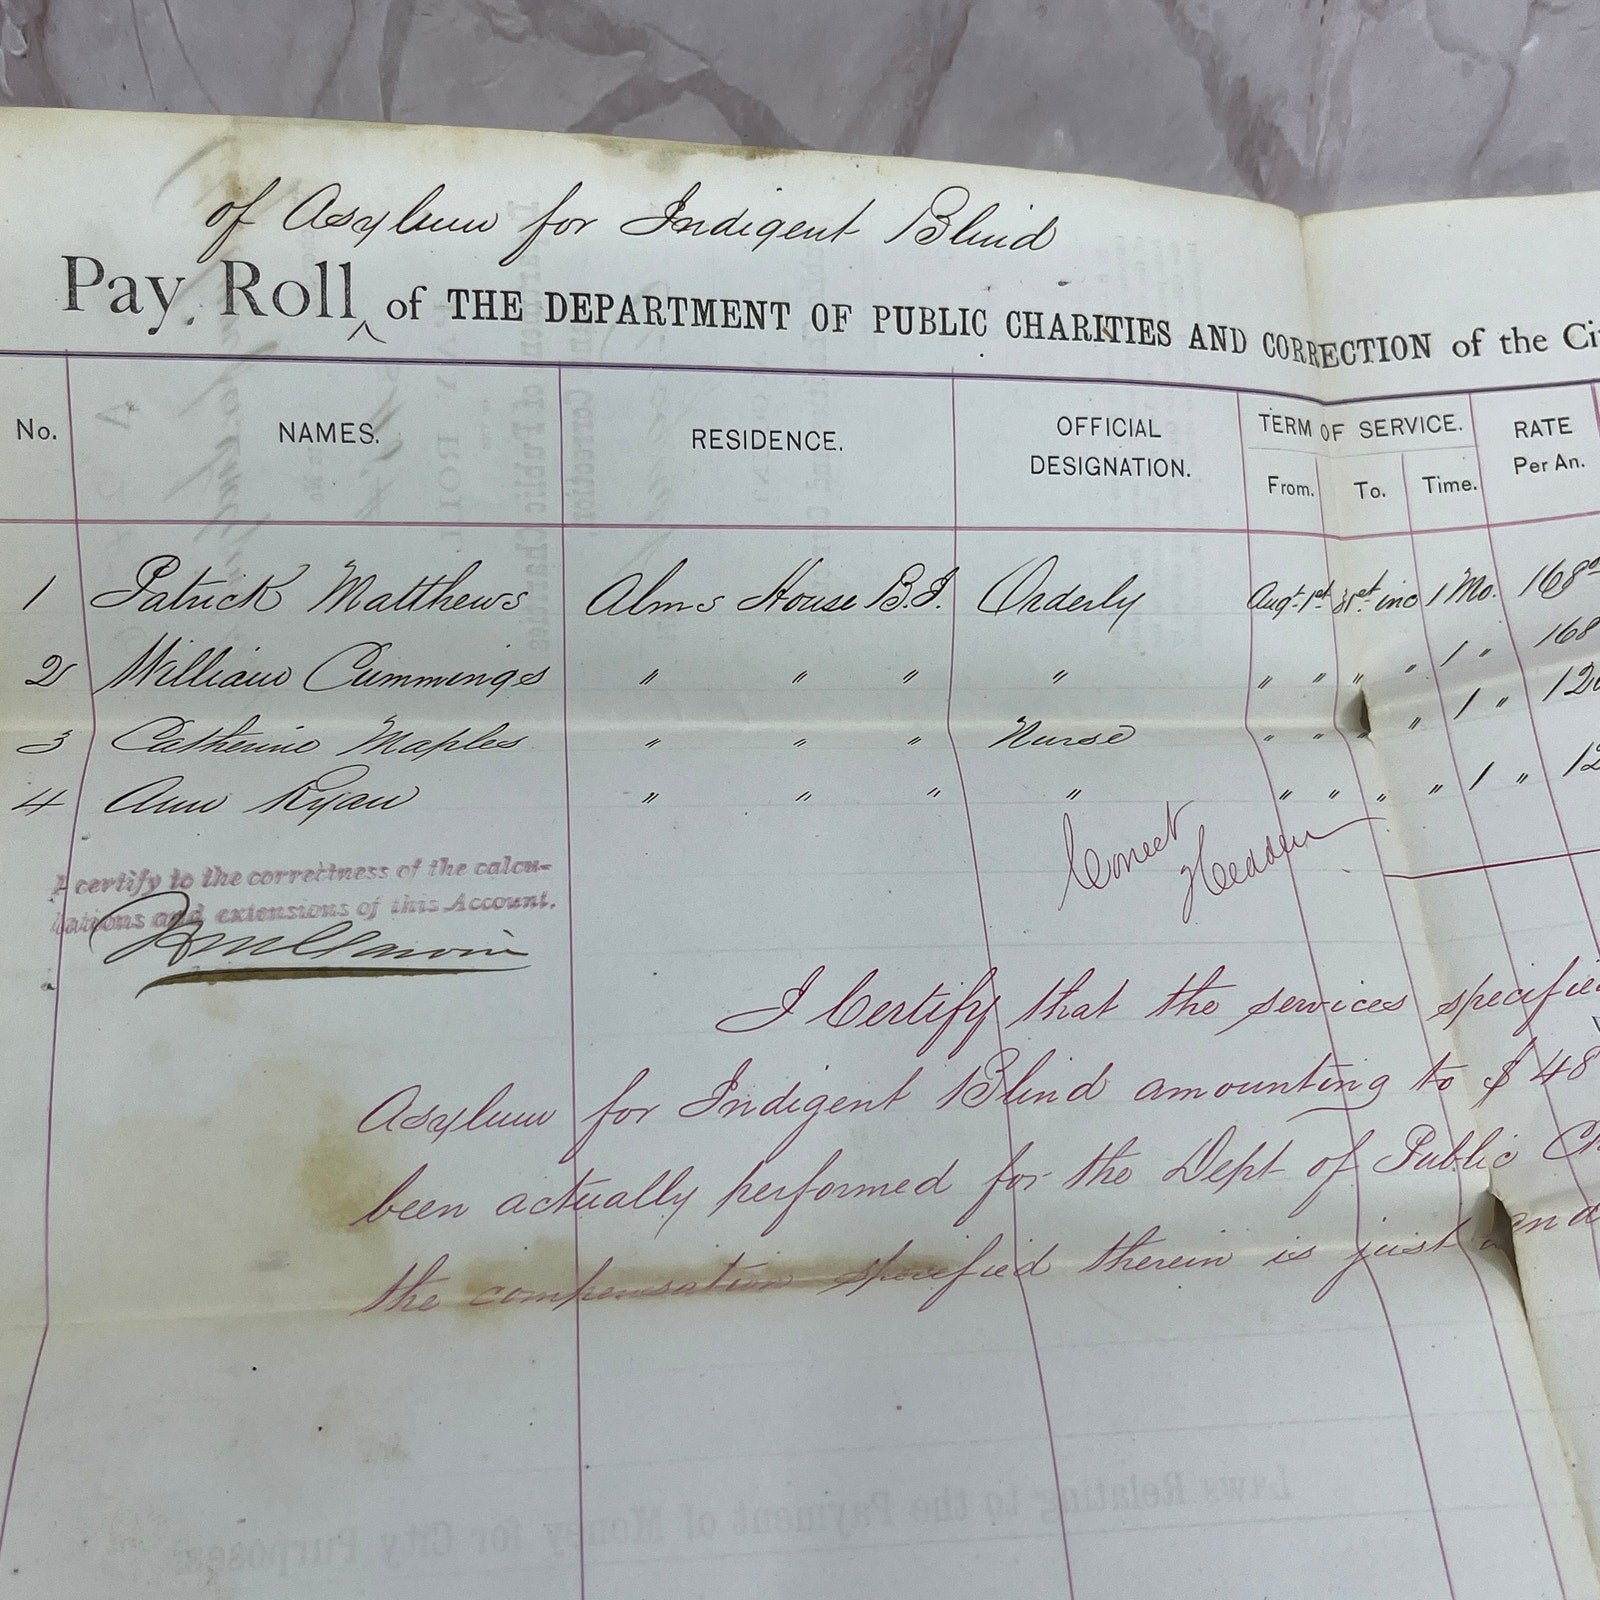 of Asylum for Indigent Blind
Pay Roll ^ of THE DEPARTMENT OF PUBLIC CHARITIES AND CORRECTION of the Ci
No. NAMES. RESIDENCE. OFFICIAL DESIGNATION. TERM OF SERVICE. RATE Per An.
From. To. Time.
1 Patrick Matthews Alms House B.I. Orderly Augt. 1st 31st inc 1 Mo. 168
2 William Cummings " " " " " " " " 1 " 168
3 Catherine Maples " " " Nurse " " " " 1 " 120
4 Ann Ryan " " " " " " " " 1 " 12
Correct
Hedden
I certify to the correctness of the calcu-
lations and extensions of this Account.
I Certify that the services specifie
Asylum for Indigent Blind amounting to $ 48
been actually performed for the Dept of Public Ch
the compensation specified therein is just and
Laws Relating to the Payment of Money for City Purposes